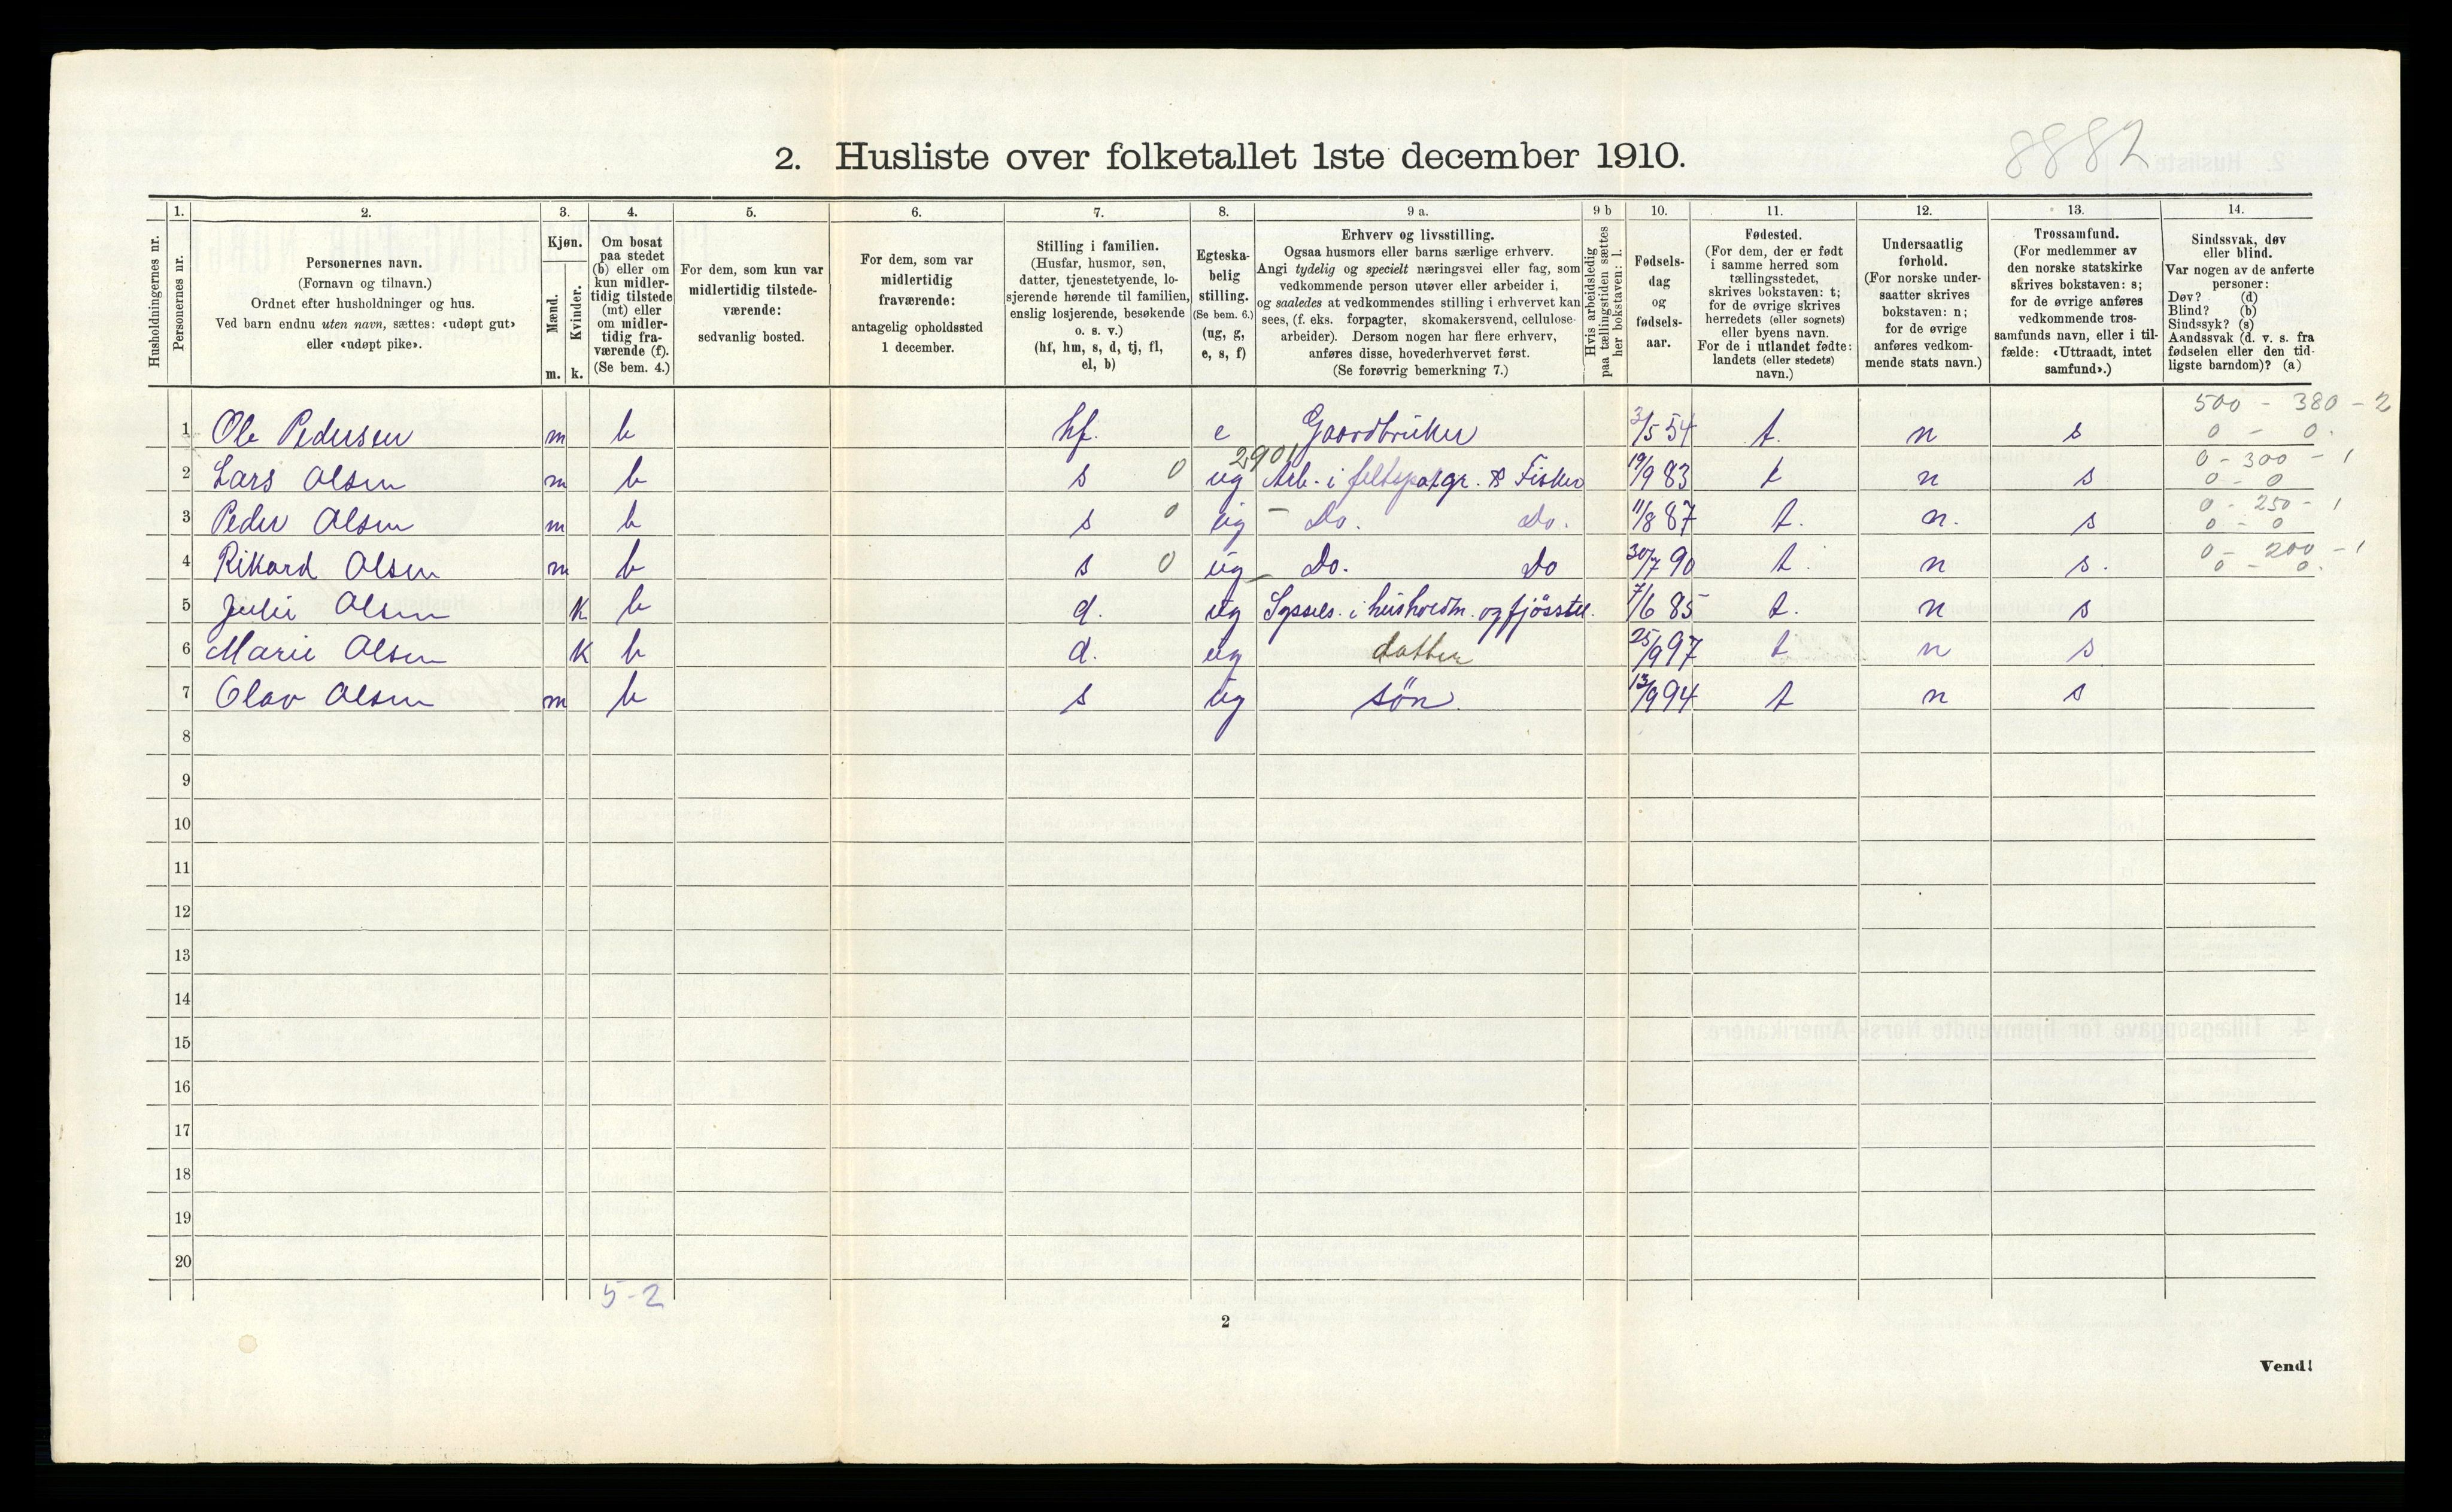 8882
2. Husliste over folketallet 1ste december 1910.
Husholdningernes nr.
1.
Personernes nr.
2.
Personernes navn.
(Fornavn og tilnavn.)
Ordnet efter husholdninger og hus.
Ved barn endnu uten navn, sættes: «udøpt gut»
eller «udøpt pike».
3.
Kjøn.
Mænd.
Kvinder.
m. k.
4.
Om bosat
paa stedet
(b) eller om
kun midler-
tidig tilstede
(mt) eller
om midler-
tidig fra-
værende (f).
(Se bem. 4.)
5.
For dem, som kun var
midlertidig tilstede-
værende:
sedvanlig bosted.
6.
For dem, som var
midlertidig
fraværende:
antagelig opholdssted
1 december.
7.
Stilling i familien.
(Husfar, husmor, søn,
datter, tjenestetyende, lo-
sjerende hørende til familien,
enslig losjerende, besøkende
o. s. v.)
(hf, hm, s, d, tj, fl,
el, b)
8.
Egteska-
belig
stilling.
(Se bem. 6.)
(ug, g,
e, s, f)
9 a.
Erhverv og livsstilling.
Ogsaa husmors eller barns særlige erhverv.
Angi tydelig og specielt næringsvei eller fag, som
vedkommende person utøver eller arbeider i,
og saaledes at vedkommendes stilling i erhvervet kan
sees, (f. eks. forpagter, skomakersvend, cellulose-
arbeider). Dersom nogen har flere erhverv,
anføres disse, hovederhvervet først.
(Se forøvrig bemerkning 7.)
9 b
Hvis arbeidsledig
paa tællingstiden sættes
her bokstaven: l.
10.
Fødsels-
dag
og
fødsels-
aar.
11.
Fødested.
(For dem, der er født
i samme herred som
tællingsstedet,
skrives bokstaven: t;
for de øvrige skrives
herredets (eller sognets)
eller byens navn.
For de i utlandet fødte:
landets (eller stedets)
navn.)
12.
Undersaatlig
forhold.
(For norske under-
saatter skrives
bokstaven: n;
for de øvrige
anføres vedkom-
mende stats navn.)
13.
Trossamfund.
(For medlemmer av
den norske statskirke
skrives bokstaven: s;
for de øvrige anføres
vedkommende tros-
samfunds navn, eller i til-
fælde: «Uttraadt, intet
samfund».)
14.
Sindssvak, døv
eller blind.
Var nogen av de anførte
personer:
Døv? (d)
Blind? (b)
Sindssyk? (s)
Aandssvak (d. v. s. fra
fødselen eller den tid-
ligste barndom)? (a)
1 Ole Pedersen m b hf. e Gaardbruker 3/5 54 t. n s 500 - 380 - 2 0 - 0.
2 Lars Olsen m b s 0 ug 2901 Arb. i feltspatgr. & Fisker 19/9 83 t n s 0 - 300 - 1 0 - 0
3 Peder Olsen m b s 0 ug - Do. Do. 11/8 87 t. n. s 0 - 250 - 1 0 - 0
4 Rikard Olsen m b s 0 ug - Do. Do 30/7 90 t. n s. 0 - 200 - 1 0 - 0.
5 Julie Olsen K b d. ug Syssels. i husholdn. og fjösstel. 7/6 85 t. n s
6 Marie Olsen K b d. ug datter 25/9 97 t n s
7 Olav Olsen m b s ug sön. 13/9 94 t n s
8
9
10
11
12
13
14
15
16
17
18
19
20
5-2
2
Vend!